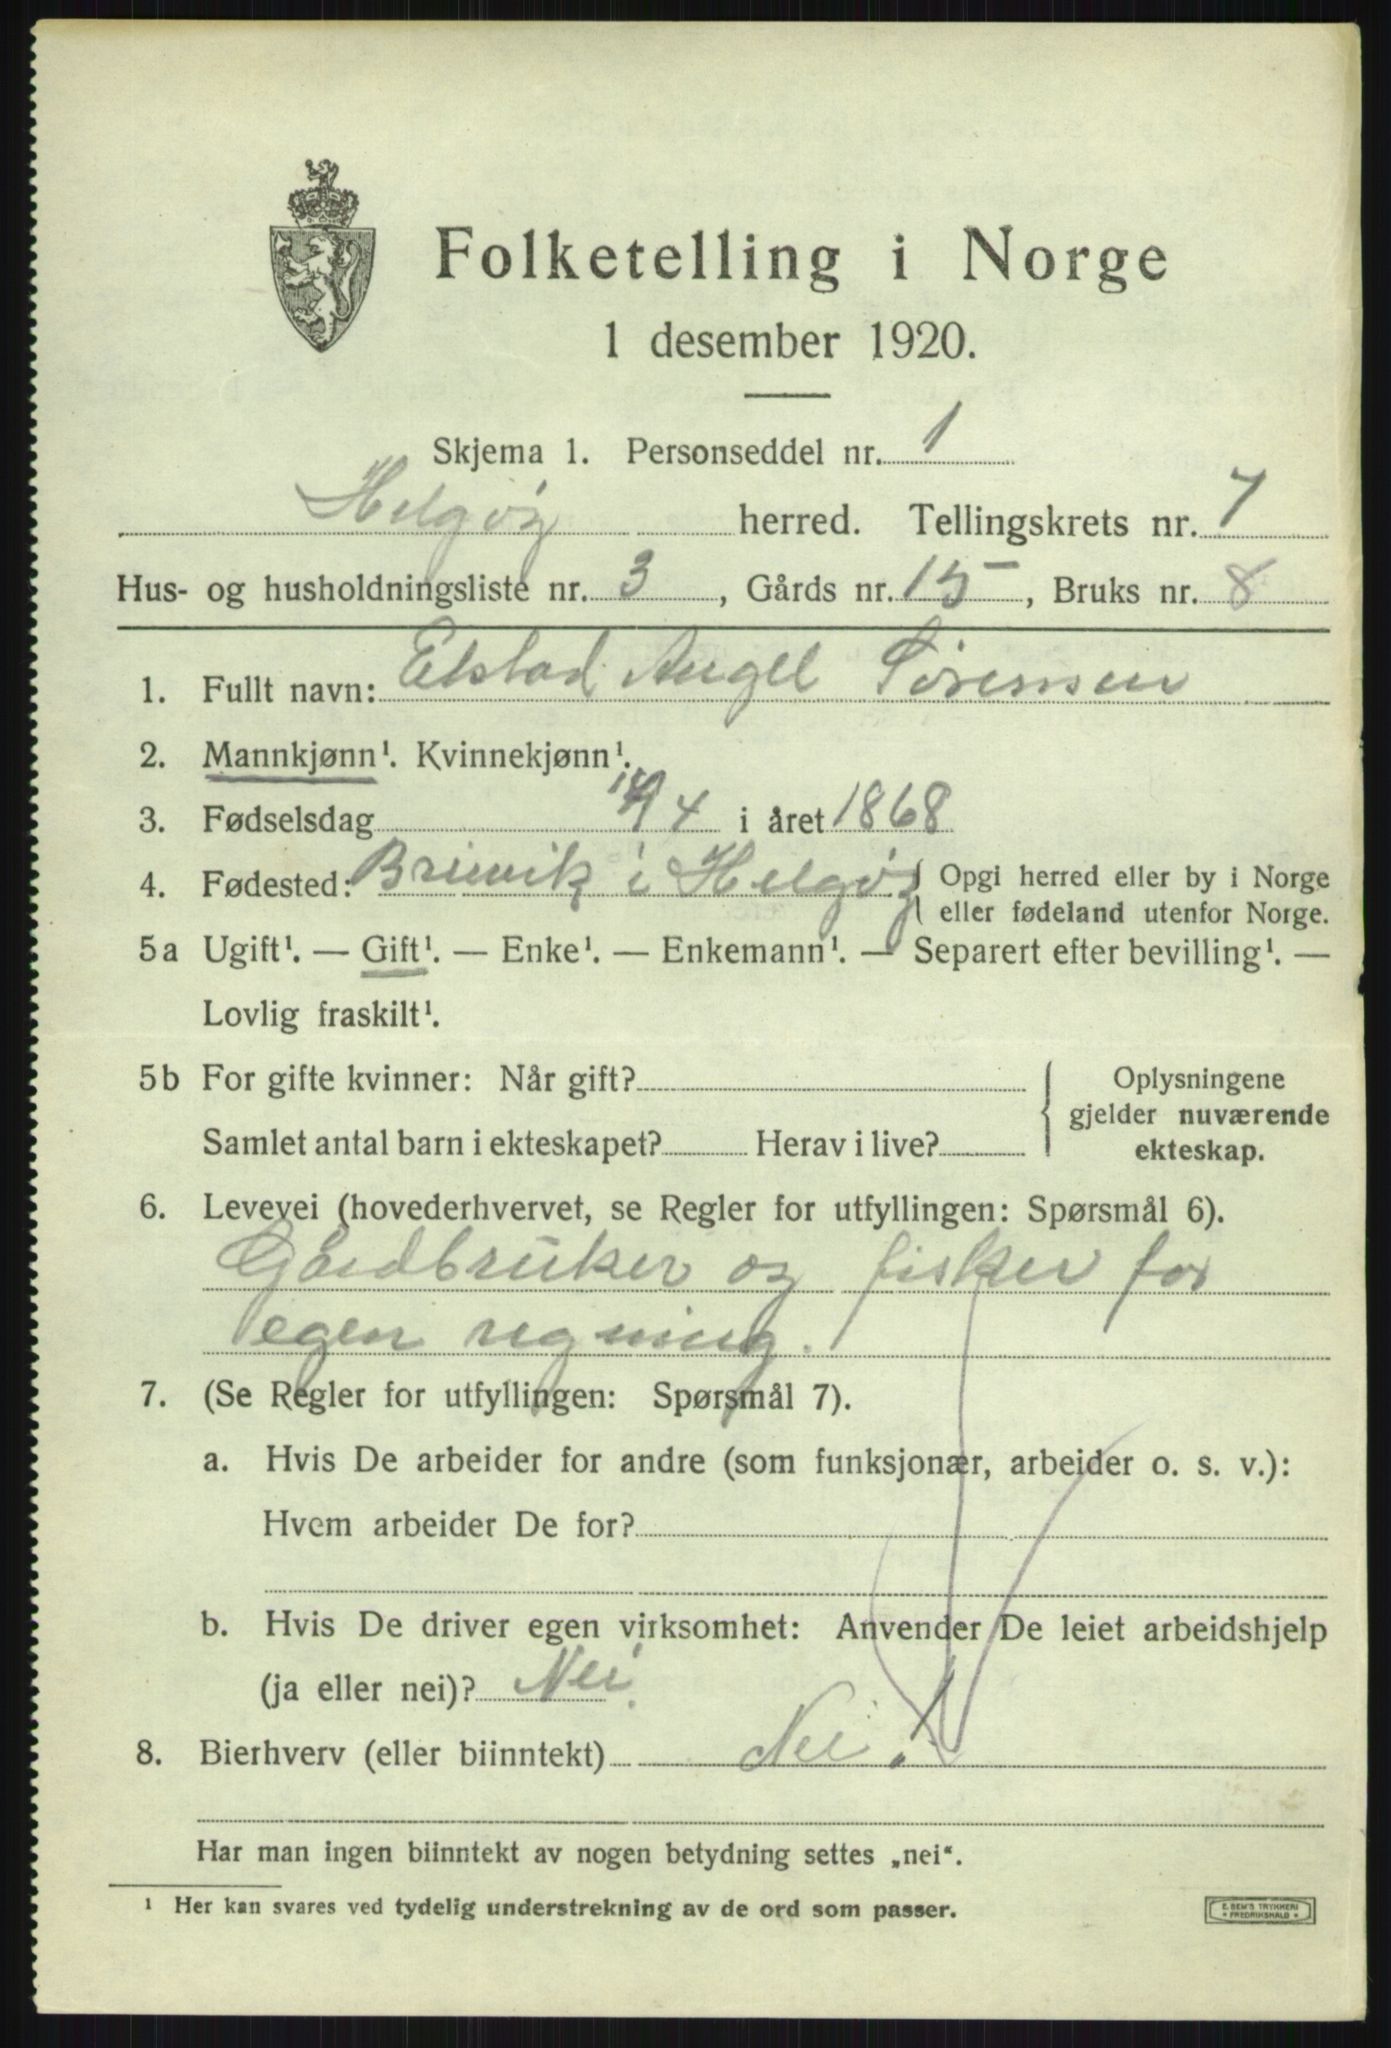 Folketelling i Norge
1 desember 1920.
Skjema 1. Personseddel nr. 1
Helgøy herred. Tellingskrets nr. 7
Hus- og husholdningsliste nr. 3, Gårds nr. 15, Bruks nr. 8
1. Fullt navn: Elstad Angel Sørensen
2. Mannkjønn¹. Kvinnekjønn¹.
3. Fødselsdag 4 i året 1868
4. Fødested: i Helgøy { Opgi herred eller by i Norge
eller fødeland utenfor Norge.
5a Ugift¹. — Gift¹. — Enke¹. — Enkemann¹. — Separert efter bevilling¹. —
Lovlig fraskilt¹.
5b For gifte kvinner: Når gift? { Oplysningene
gjelder nuværende
Samlet antal barn i ekteskapet? Herav i live? ekteskap.
6. Levevei (hovederhvervet, se Regler for utfyllingen: Spørsmål 6).
Gårdbruker og fisker for
egen regning.
7. (Se Regler for utfyllingen: Spørsmål 7).
a. Hvis De arbeider for andre (som funksjonær, arbeider o. s. v.):
Hvem arbeider De for?
b. Hvis De driver egen virksomhet: Anvender De leiet arbeidshjelp
(ja eller nei)? Nei.
8. Bierhverv (eller biinntekt) Nei!
Har man ingen biinntekt av nogen betydning settes „nei“.
¹ Her kan svares ved tydelig understrekning av de ord som passer.
E. SEM'S TRYKKERI
* FREDRIKSHALD *